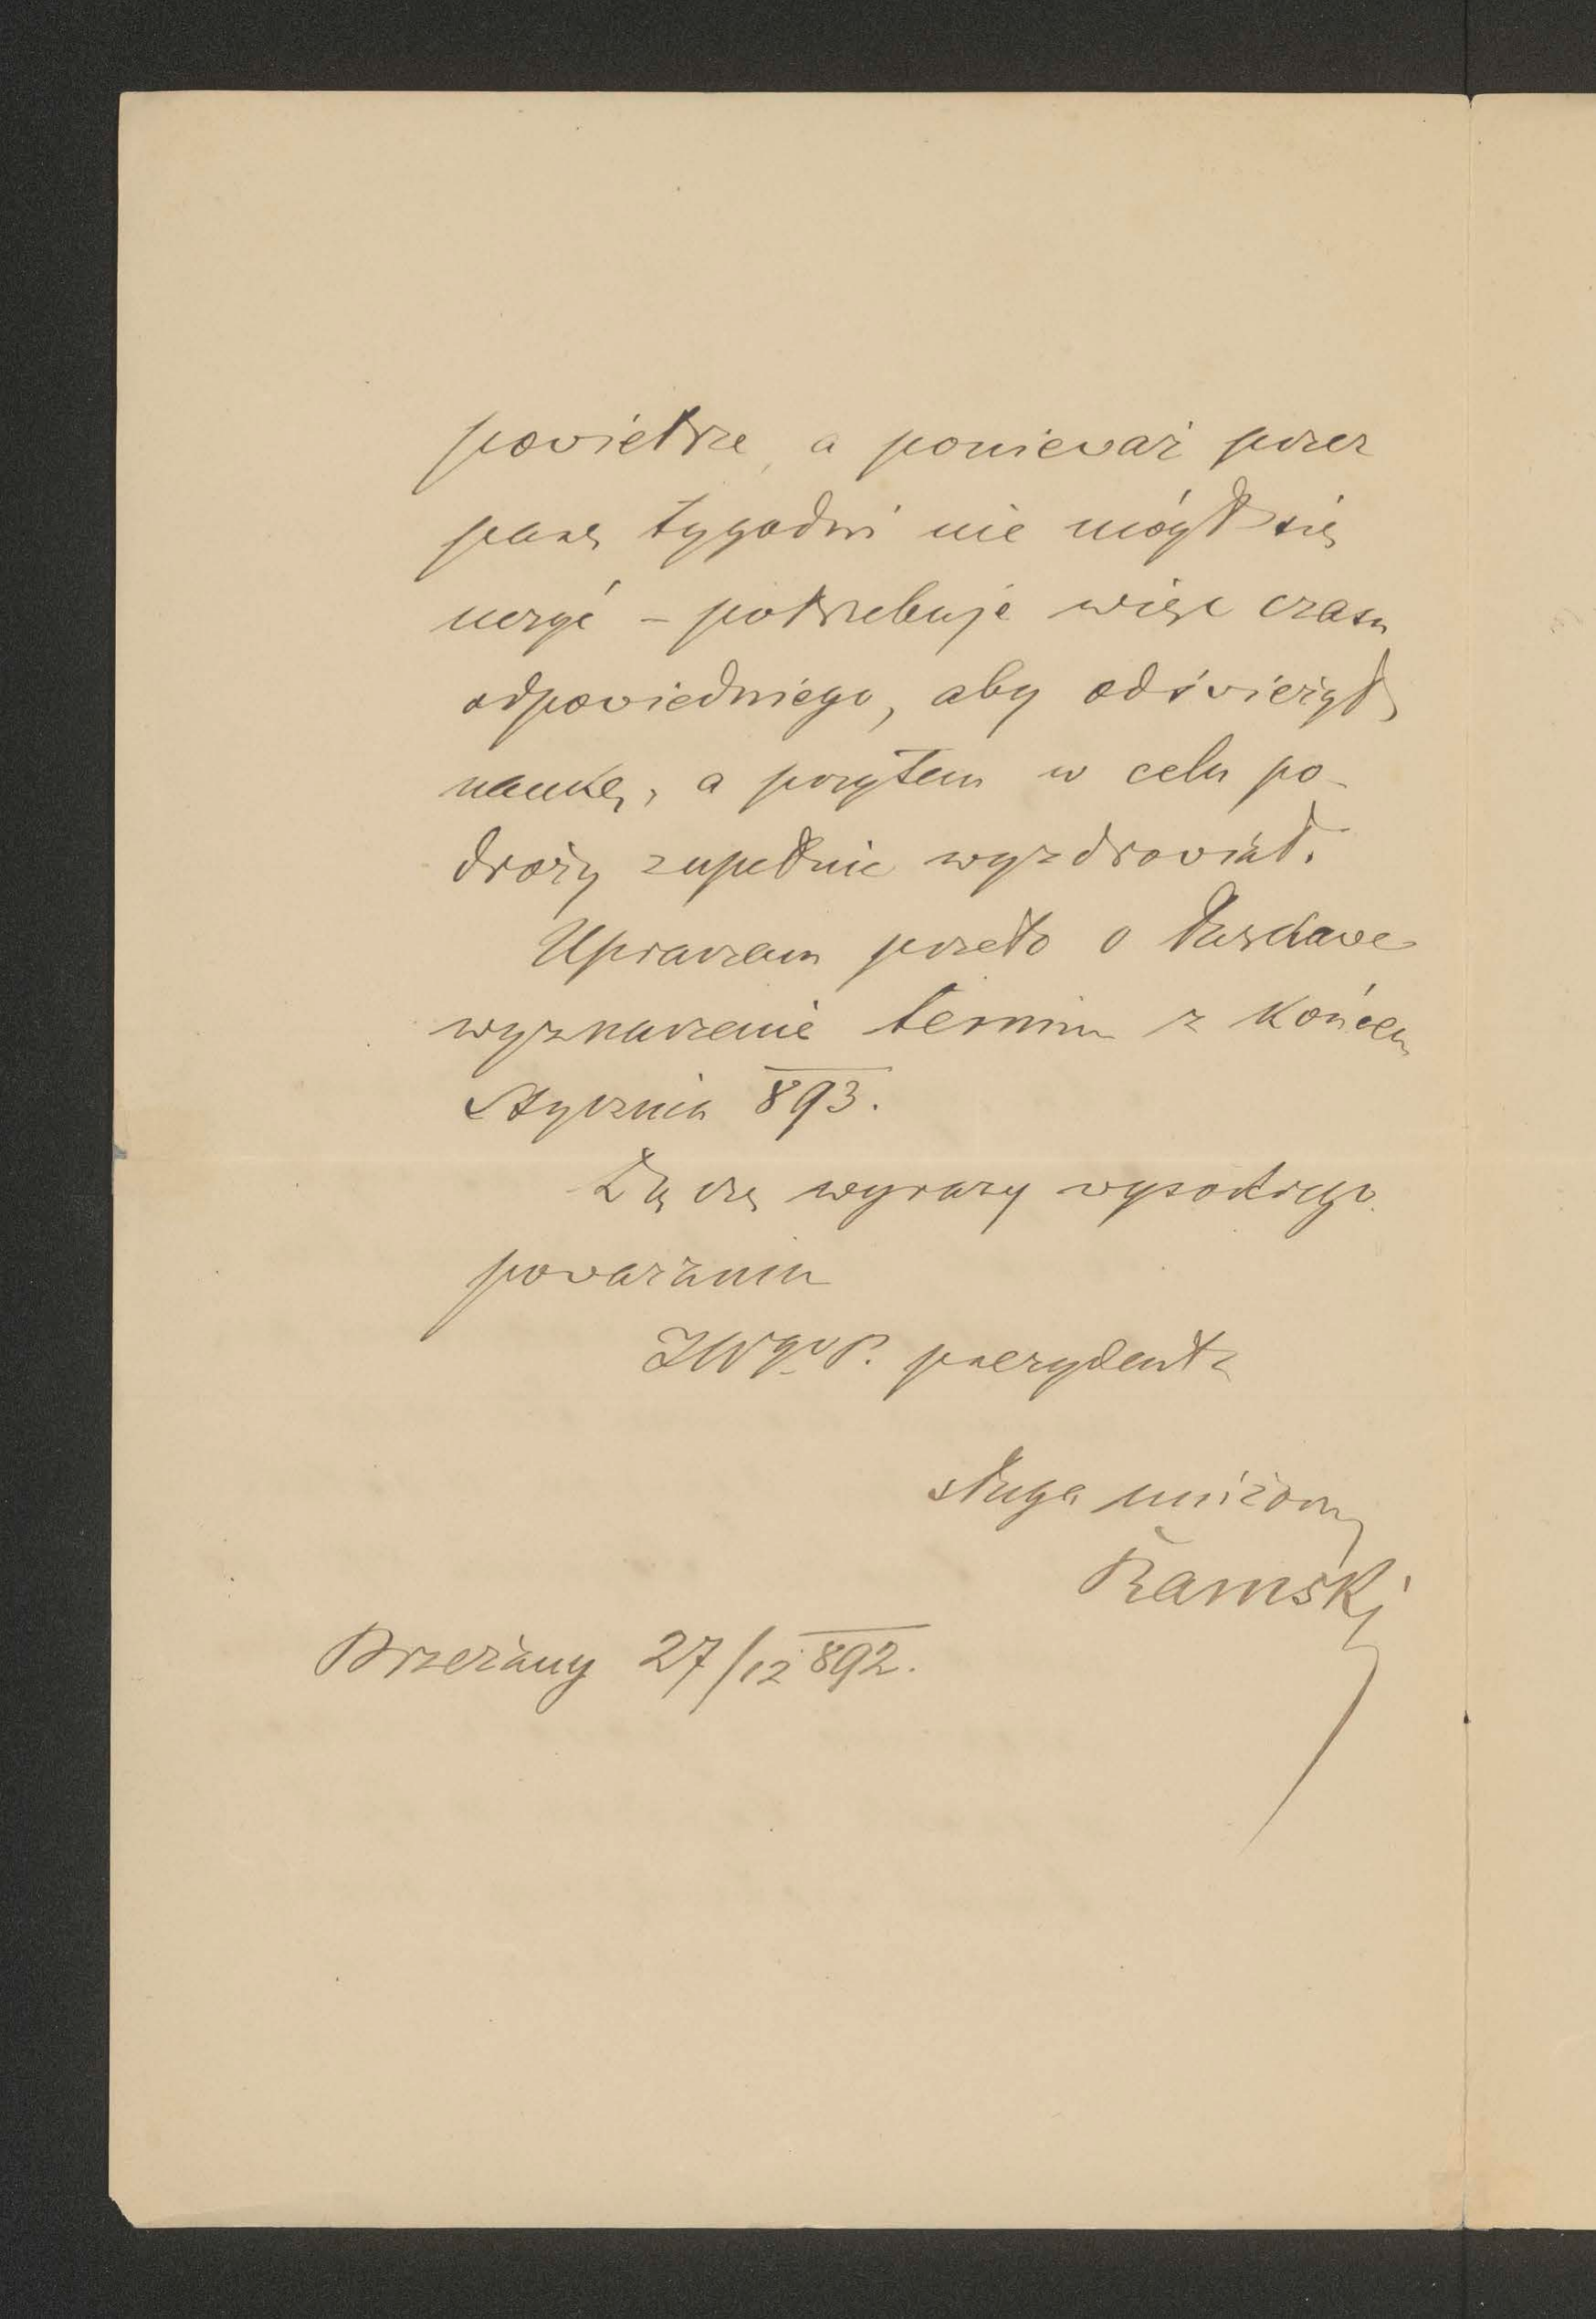 powietrze, a ponieważ przez
parę tygodni nie mógł się
uczyć – potrzebuje więc czasu
odpowiedniego, aby odświeżył
naukę, a przytem w celu po-
droży zupełnie wyzdrowiał.
Upraszam przeto o łaskawe
wyznaczenie termin z końcem
Stycznia 893.
Łączę wyrazy wysokiego
poważania
JWgo P. prezydenta
sługa uniżony
Ramski
Brzeżany 27/12 892.